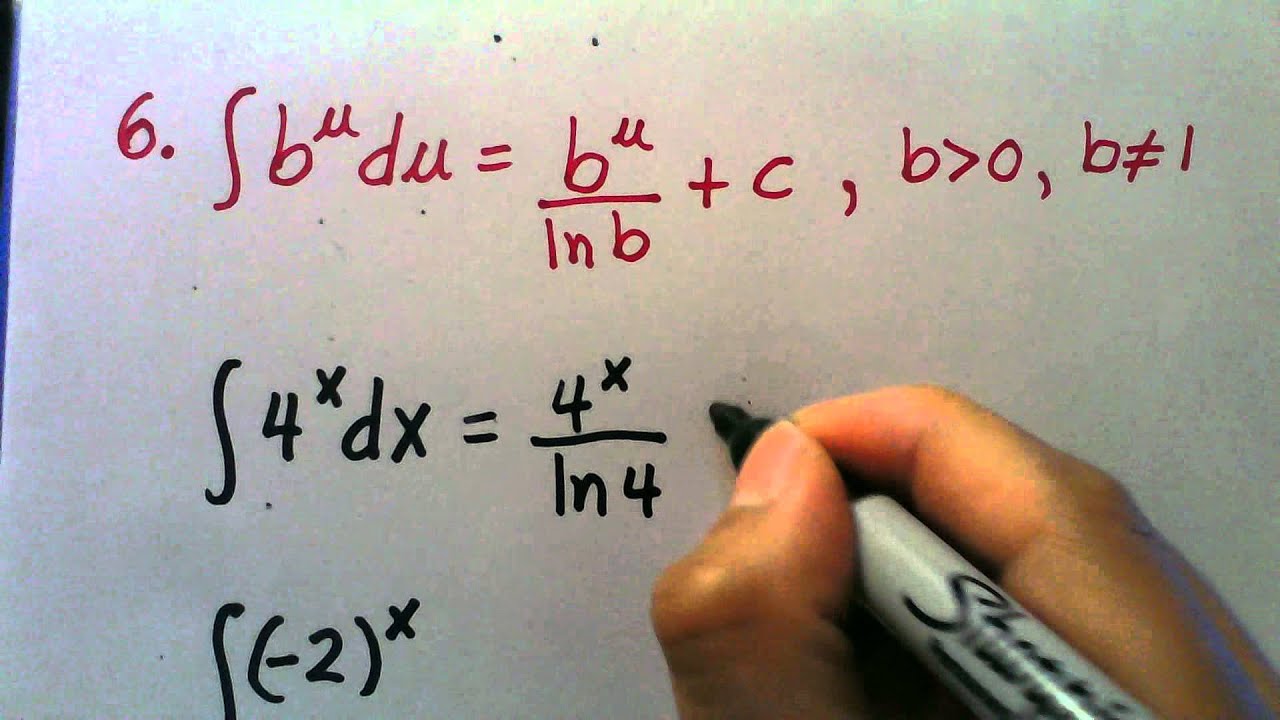 6. ∫ b^u du = b^u / ln b + c , b>0, b≠1
∫ 4^x dx = 4^x / ln 4
∫ (-2)^x